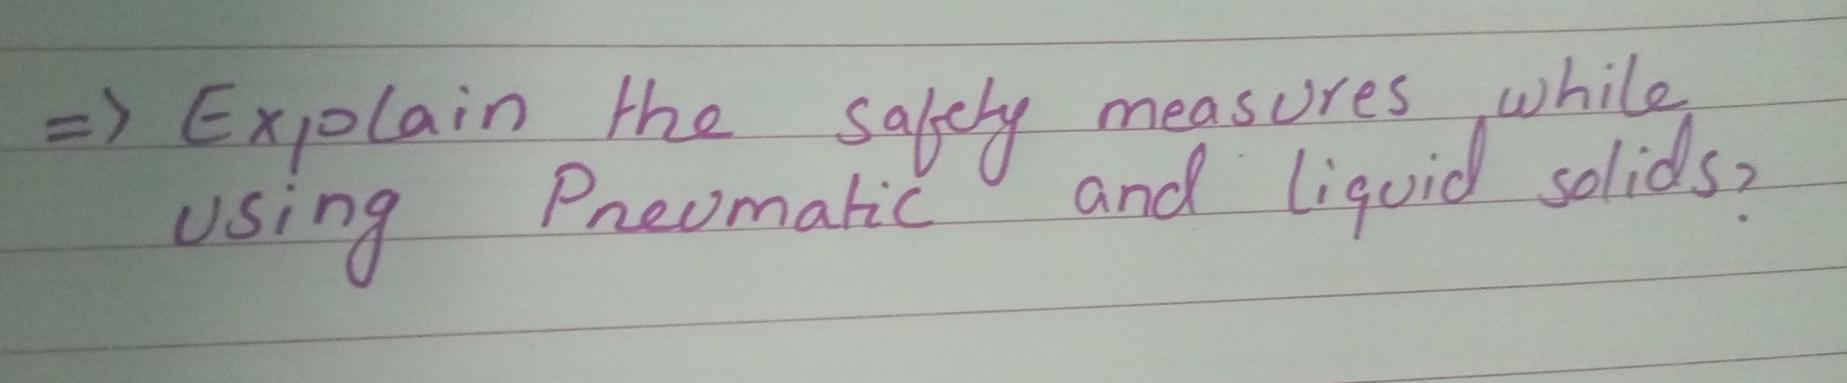 => Explain the safety measures while
using Pneumatic and liquid solids?